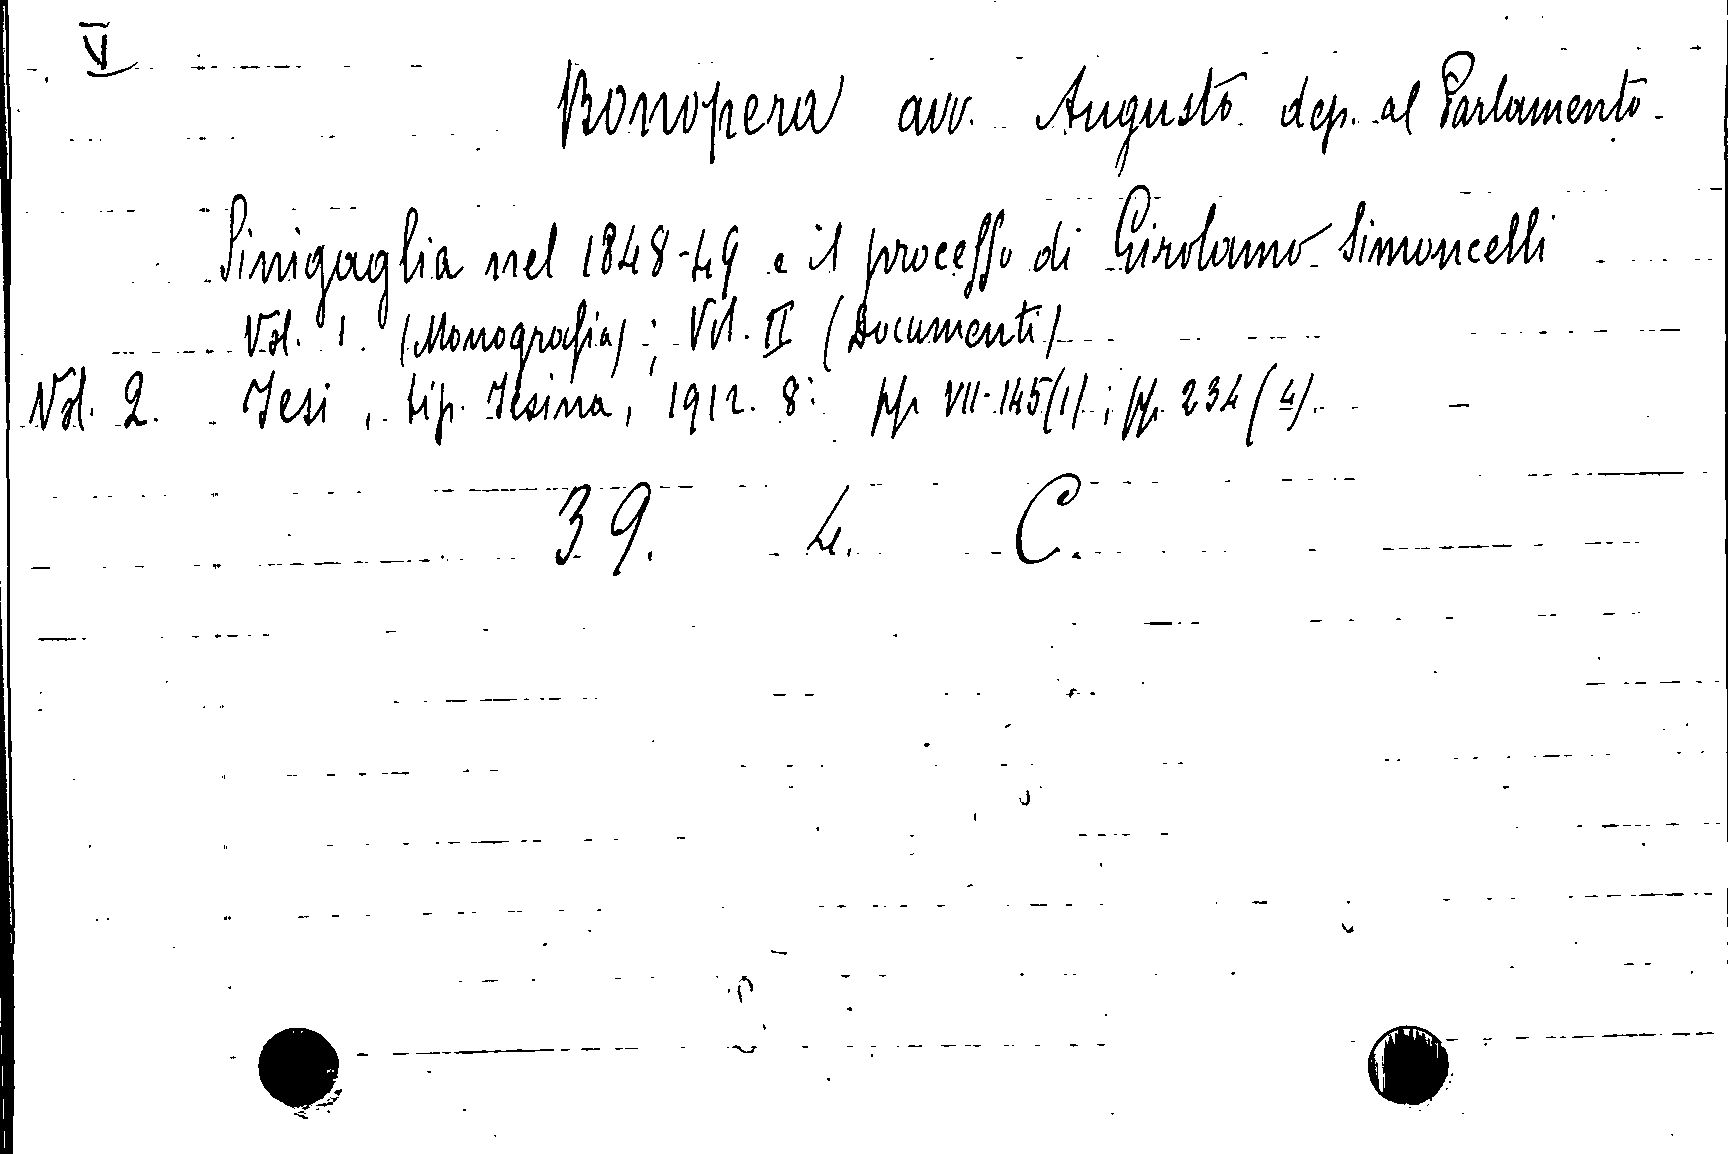 V
Bonopera avv. Augusto dep. al Parlamento.
Sinigaglia nel 1848-49 e il processo di Girolamo Simoncelli
Vol. I. (Monografia); Vol. II (Documenti)
Vol. 2. Jesi, tip. Jesina, 1912. 8º pp. VII-145(1); pp. 234(4).
39. 4. C.